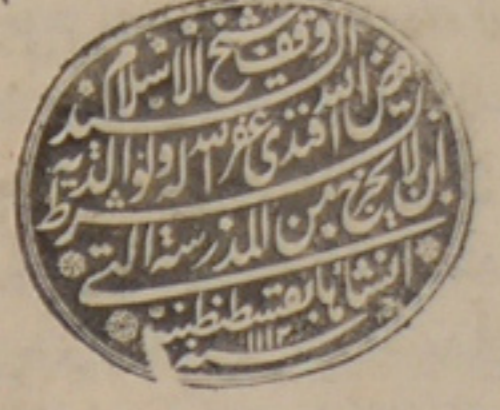 وقف شيخ الاسلام
السيد فيض الله افندى غفر الله له ولوالديه
بشرط ان لا يخرج من المدرسة التى
انشاها بقسطنطنيه
سنه ١١١٢